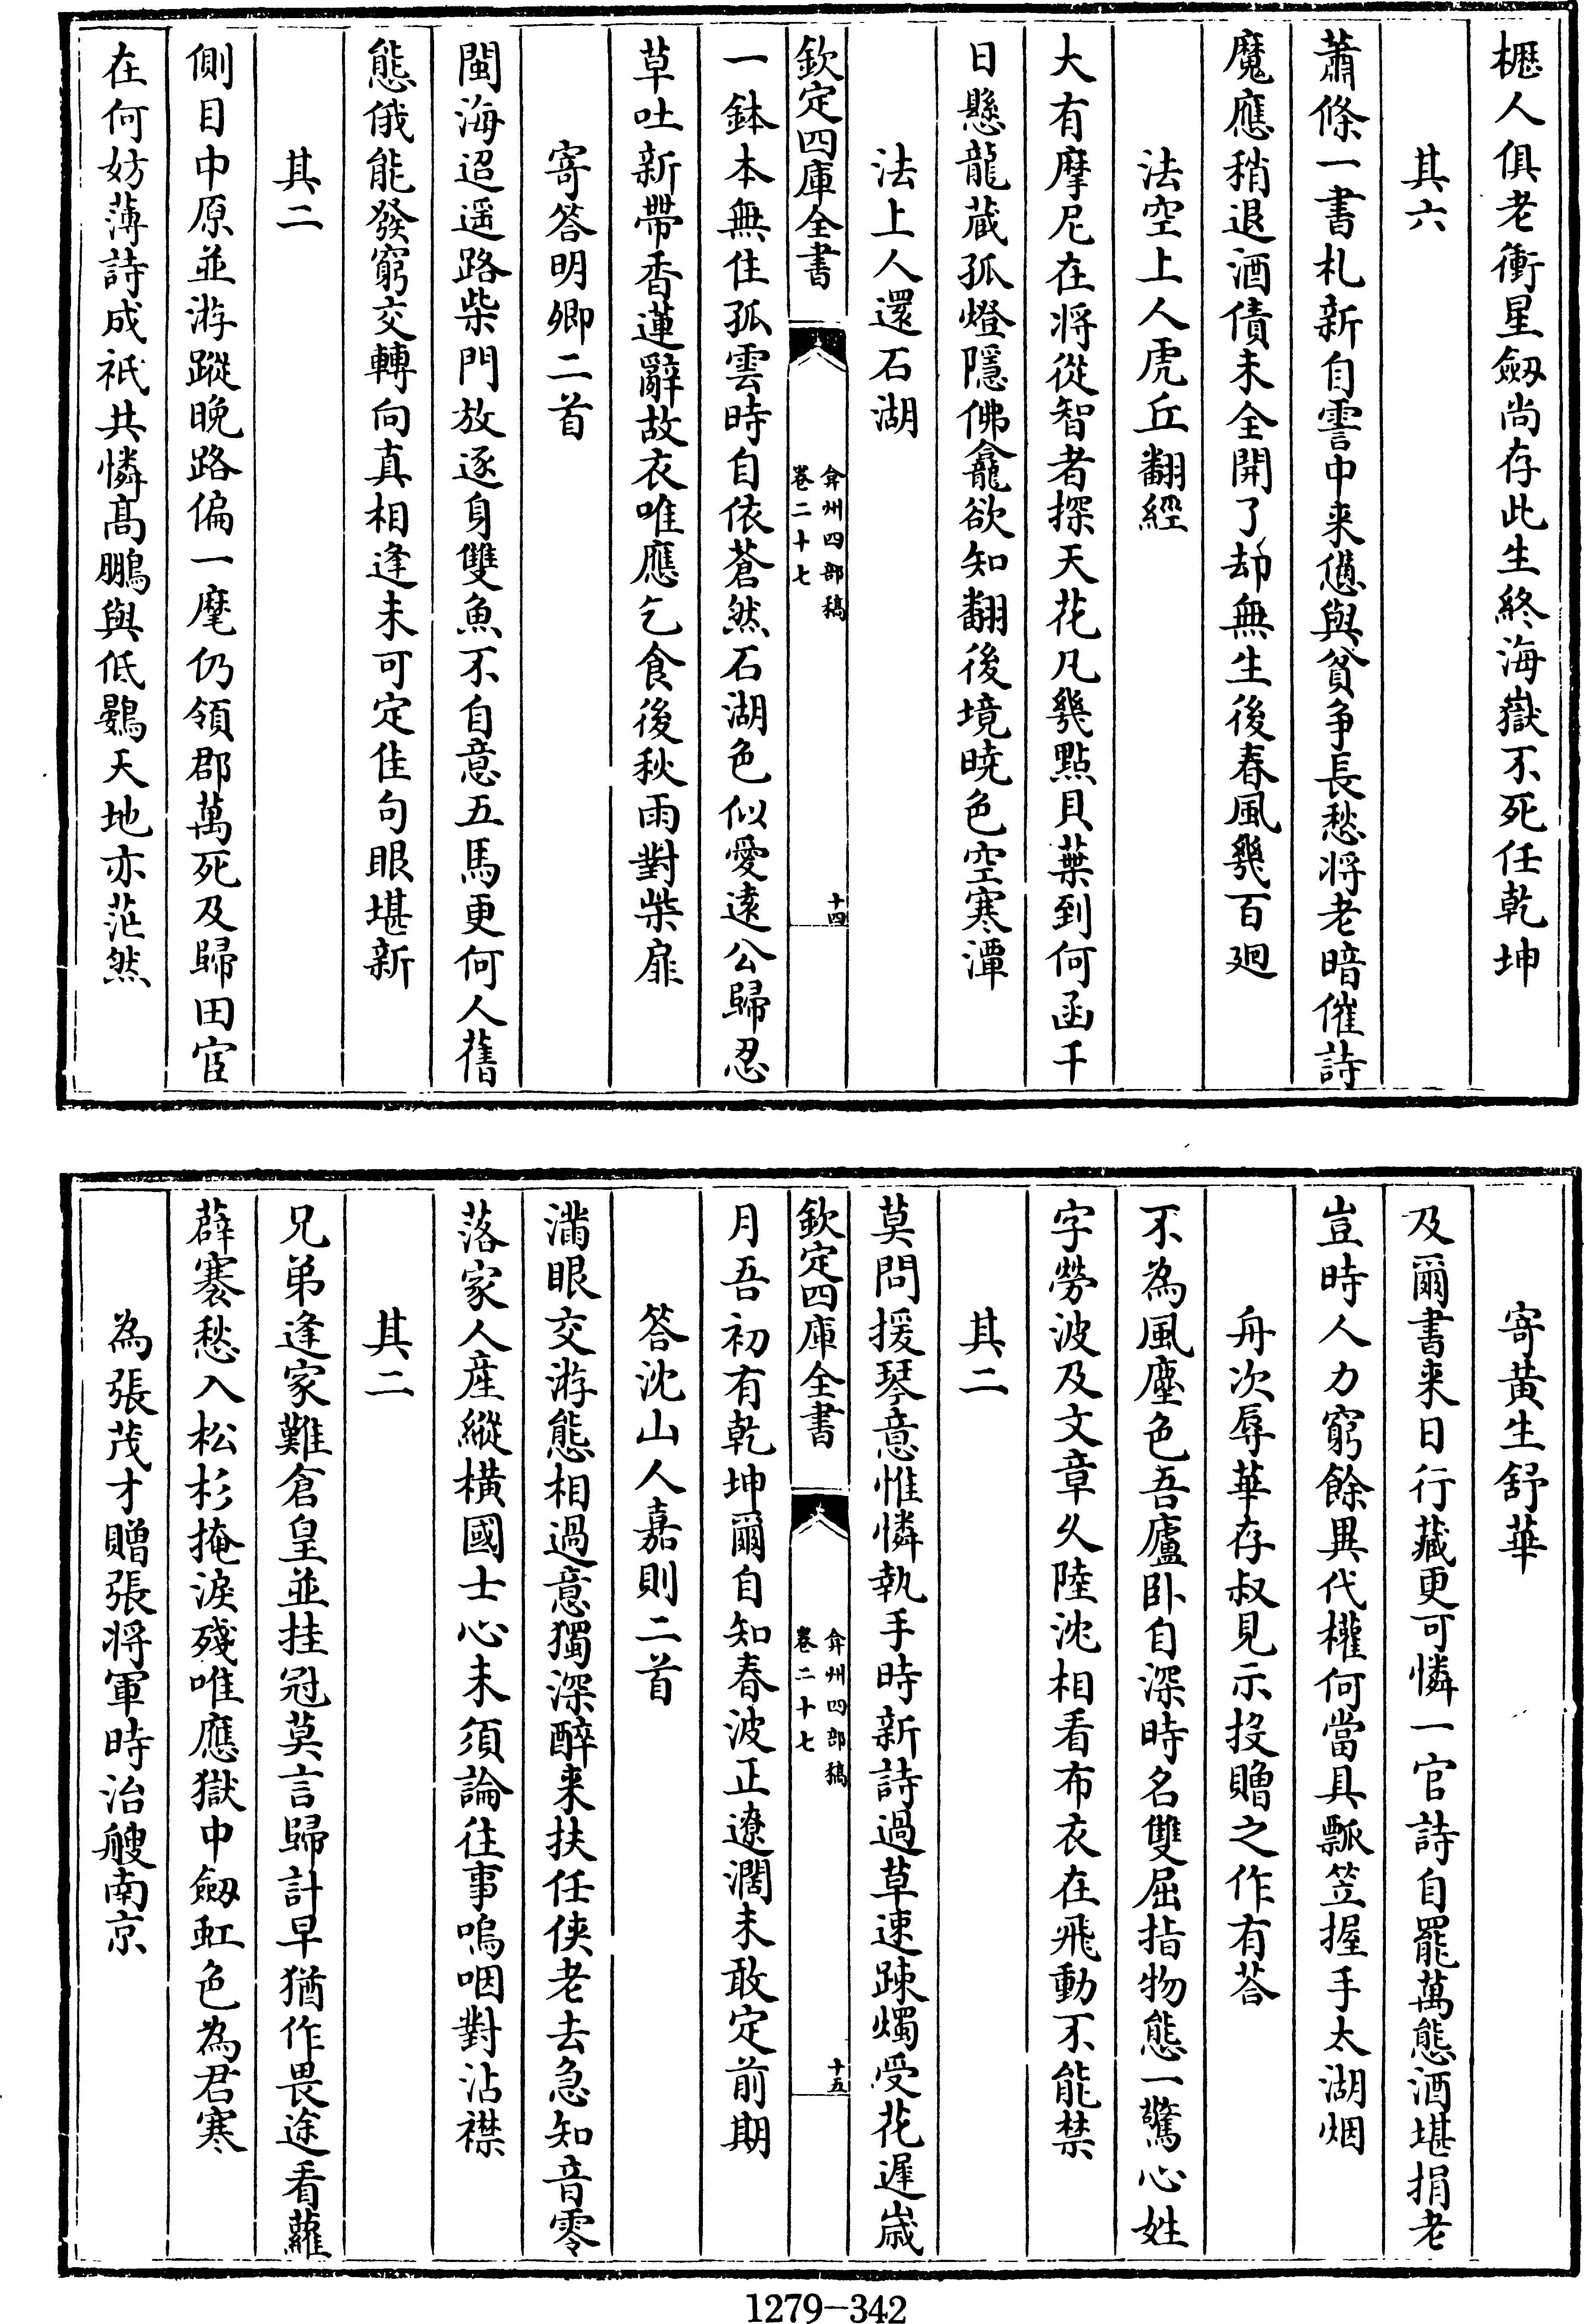 櫪人俱老衝星劔尚存此生終海嶽不死任乾坤
其六
蕭條一書札新自霅中来憊與貧争長愁将老暗催詩
魔應稍退酒債未全開了却無生後春風幾百廻
法空上人虎丘翻經
大有摩尼在将從智者探天花凡幾點貝葉到何函千
日懸龍蔵孤燈隱佛龕欲知翻後境暁色空寒潭
法上人還石湖
欽定四庫全書
弇州四部稿
卷二十七
十四
一鉢本無住孤雲時自依蒼然石湖色似愛逺公歸忍
草吐新帶香蓮辭故衣唯應乞食後秋雨對柴扉
寄答明卿二首
閩海迢遥路柴門放逐身雙魚不自意五馬更何人舊
態俄能發窮交轉向真相逢未可定佳句眼堪新
其二
側目中原並游蹤晚路偏一麾仍領郡萬死及歸田宦
在何妨薄詩成祇共憐髙鵬與低鷃天地亦茫然
寄黄生舒華
及爾書来日行藏更可憐一官詩自罷萬態酒堪捐老
豈時人力窮餘異代權何當具瓢笠握手太湖烟
舟次辱華存叔見示投贈之作有荅
不為風塵色吾廬卧自深時名雙屈指物態一驚心姓
字勞波及文章乆陸沈相看布衣在飛動不能禁
其二
莫問援琴意惟憐執手時新詩過草速踈燭受花遲嵗
欽定四庫全書
弇州四部稿
卷二十七
十五
月吾初有乾坤爾自知春波正遼濶未敢定前期
答沈山人嘉則二首
滿眼交游態相過意獨深醉来扶任侠老去急知音零
落家人産縱橫國士心未須論往事嗚咽對沾襟
其二
兄弟逢家難倉皇並挂冠莫言歸計早猶作畏途看蘿
薜褰愁入松杉掩淚殘唯應獄中劔虹色為君寒
為張茂才贈張将軍時治艘南京
1279-342